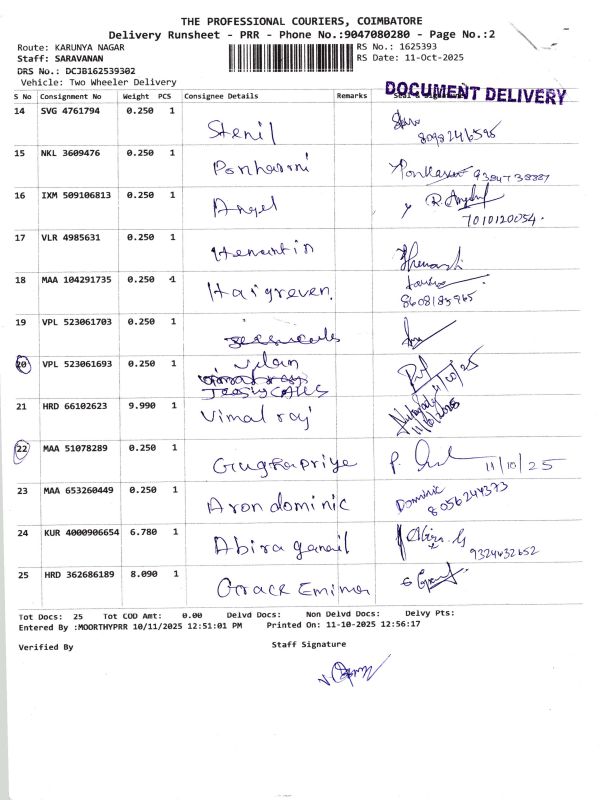 THE PROFESSIONAL COURIERS, COIMBATORE
Delivery Runsheet - PRR - Phone No.:9047080280 - Page No.:2
Route: KARUNYA NAGAR
RS No.: 1625393
Staff: SARAVANAN
RS Date: 11-Oct-2025
DRS No.: DCJB162539302
Vehicle: Two Wheeler Delivery
DOCUMENT DELIVERY
S No Consignment No Weight PCS Consignee Details Remarks
14 SVG 4761794 0.250 1 Stenil
8098246595
15 NKL 3609476 0.250 1 Ponharini 9384738887
16 IXM 509106813 0.250 1 Angel
7010120054.
17 VLR 4985631 0.250 1 Henantin
18 MAA 104291735 0.250 1 Haigreven.
8608185965
19 VPL 523061703 0.250 1
20 VPL 523061693 0.250 1
21 HRD 66102623 9.990 1 Vimal raj
11/10/2025
22 MAA 51078289 0.250 1 Gugkapriye 11/10/25
23 MAA 653260449 0.250 1 Aron dominic Dominic
8056244373
24 KUR 4000906654 6.780 1 Abira ganail Abira. G
9324632652
25 HRD 362686189 8.090 1 Grace Emima
Tot Docs: 25 Tot COD Amt: 0.00 Delvd Docs: Non Delvd Docs: Delvy Pts:
Entered By :MOORTHYPRR 10/11/2025 12:51:01 PM Printed On: 11-10-2025 12:56:17
Verified By
Staff Signature